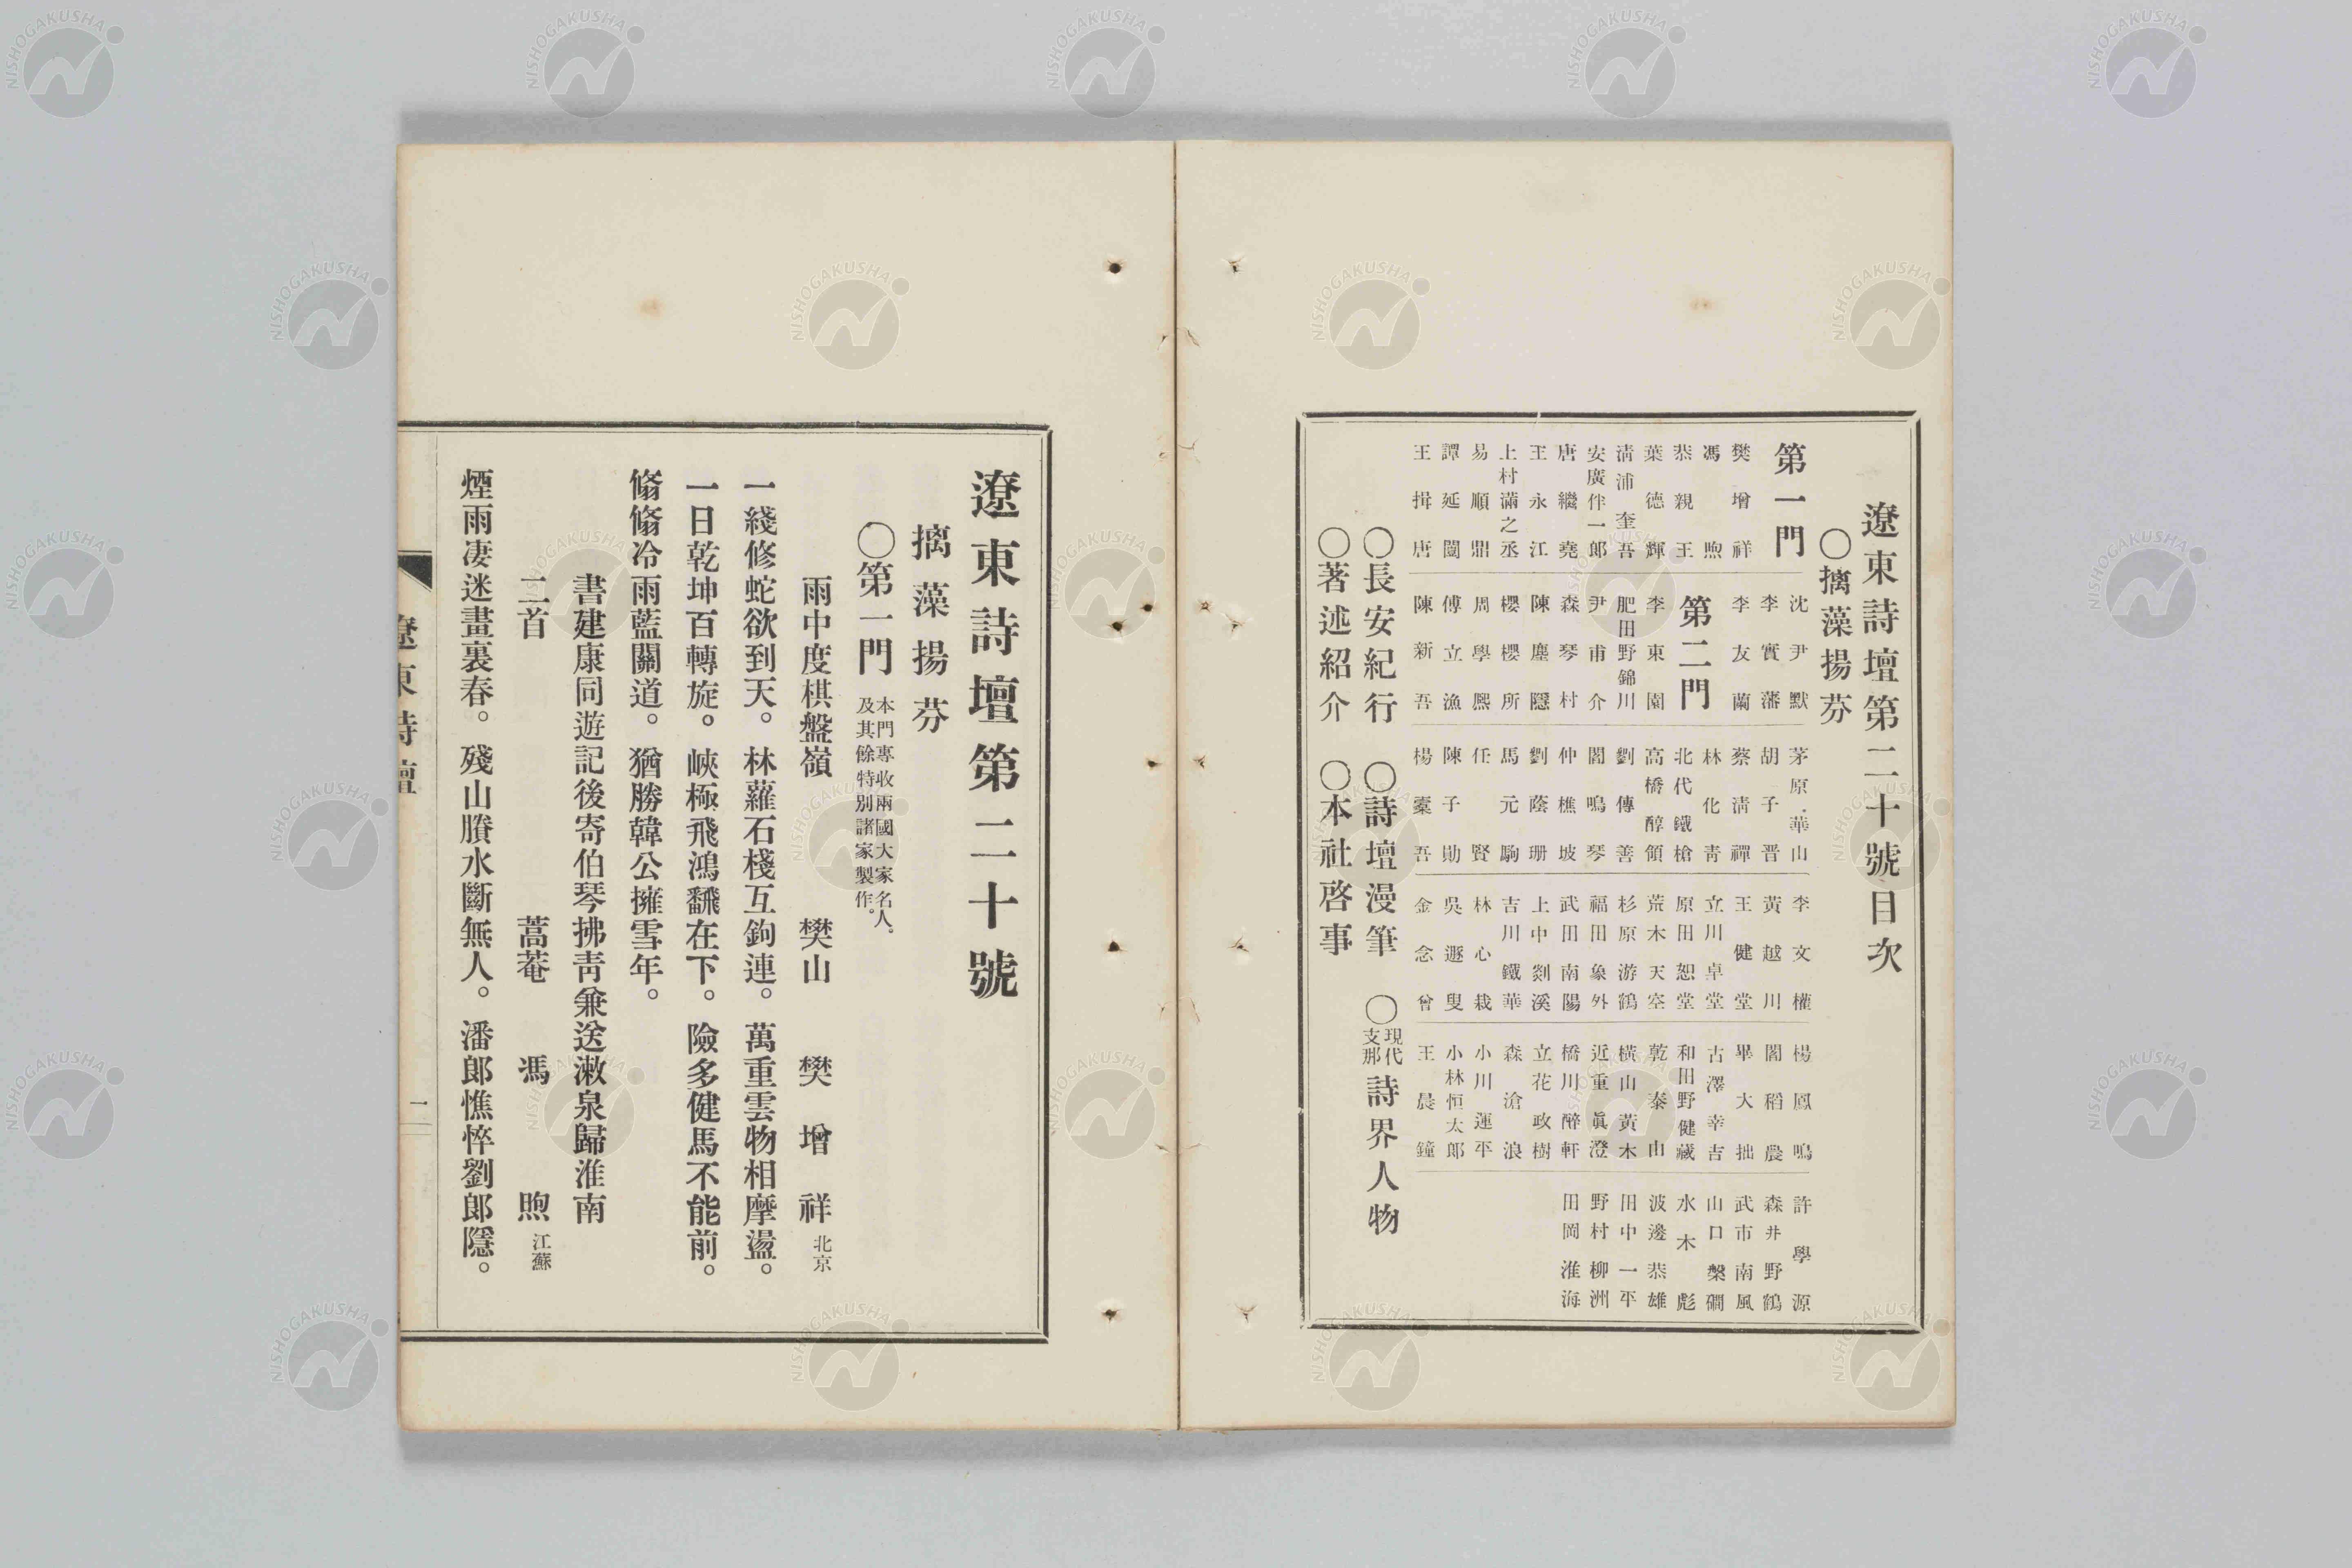 遼東詩壇第二十號目次
○摛藻揚芬
第一門
樊增祥
馮煦
恭親王
葉德輝
清浦奎吾
安廣伴一郎
唐繼堯
王永江
上村滿之丞
易順鼎
譚延闓
王揖唐
沈尹默
李實藩
李友蘭
第二門
李東園
肥田野錦川
尹甫介
森琴村
陳塵隱
櫻櫻所
周學熙
傅立漁
陳新吾
茅原華山
胡子晋
蔡清禪
林化靑
北代鐵槍
高橋醇領
劉傳善
閻鳴琴
仲樵坡
劉蔭珊
馬元駒
任賢
陳子勛
楊槖吾
李文權
黃越川
王健堂
立川卓堂
原田恕堂
荒木天空
杉原游鶴
福田象外
武田南陽
上中剡溪
吉川鐵華
林心栽
吳遯叟
金念曾
楊鳳鳴
閻稻農
畢大拙
古澤幸吉
和田野健藏
乾泰山
橫山黃木
近重眞澄
橋川醉軒
立花政樹
森滄浪
小川運平
小林恒太郎
王晨鐘
許學源
森井野鶴
武市南風
山口槃磵
水木彪
波邊恭雄
田中一平
野村柳洲
田岡淮海
○長安紀行 ○詩壇漫筆 ○現代支那詩界人物
○著述紹介 ○本社啓事
遼東詩壇第二十號
摛藻揚芬
○第一門 本門專收兩國大家名人。及其餘特別諸家製作。
雨中度棋盤嶺 樊山 樊增祥 北京
一綫修蛇欲到天。林蘿石棧互鉤連。萬重雲物相摩盪。
一日乾坤百轉旋。峽極飛鴻飜在下。險多健馬不能前。
翛翛冷雨藍關道。猶勝韓公擁雪年。
書建康同遊記後寄伯琴拂靑兼送漱泉歸淮南
二首 蒿菴 馮煦 江蘇
煙雨凄迷畫裏春。殘山賸水斷無人。潘郞憔悴劉郞隱。
遼東詩壇
一